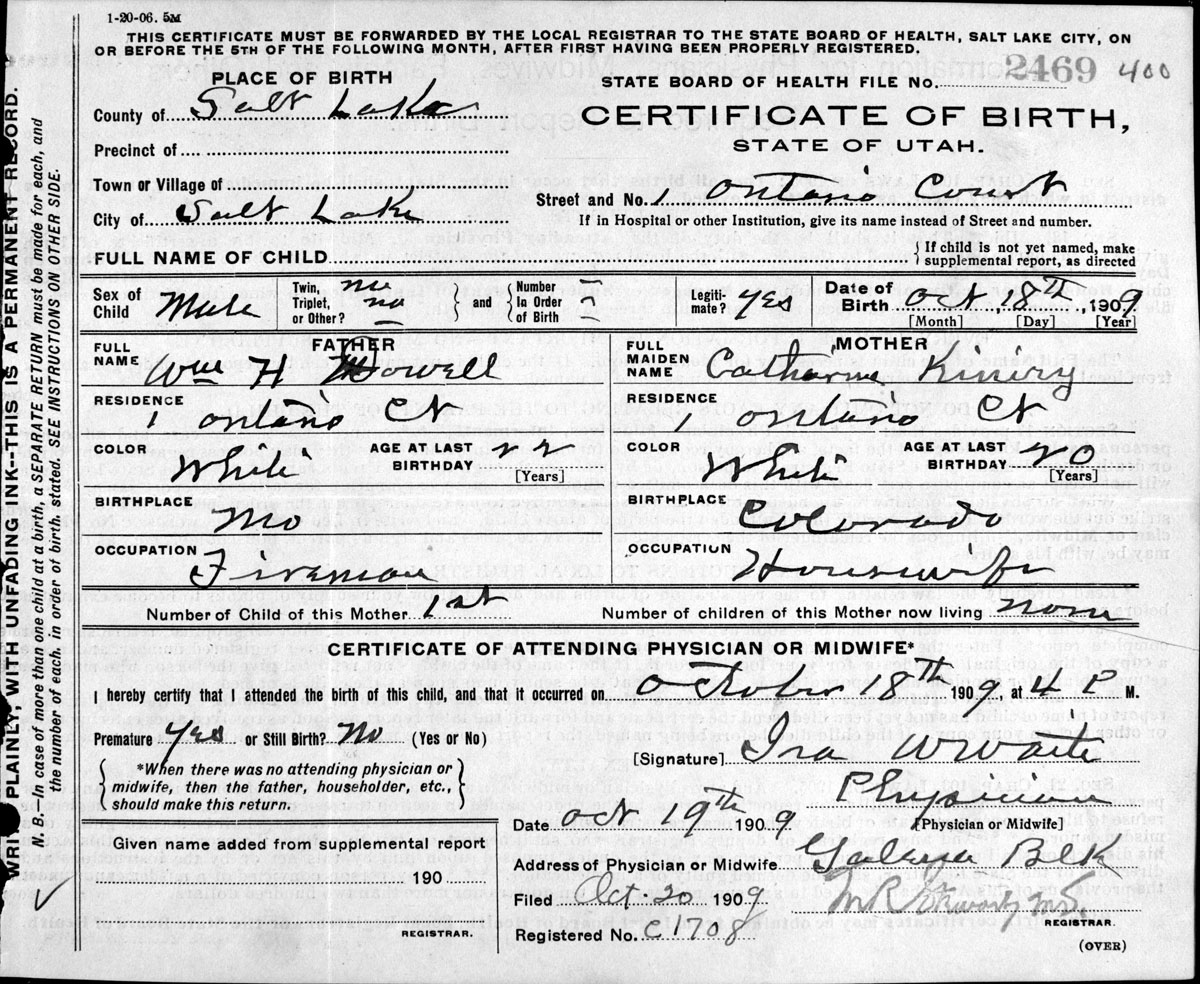 1-20-06. 5M
THIS CERTIFICATE MUST BE FORWARDED BY THE LOCAL REGISTRAR TO THE STATE BOARD OF HEALTH, SALT LAKE CITY, ON
OR BEFORE THE 5TH OF THE FOLLOWING MONTH, AFTER FIRST HAVING BEEN PROPERLY REGISTERED.
PLACE OF BIRTH
STATE BOARD OF HEALTH FILE NO. 2469 400
County of Salt Lake
CERTIFICATE OF BIRTH,
Precinct of
STATE OF UTAH.
Town or Village of
Street and No. 1 Ontario Court
City of Salt Lake
If in Hospital or other Institution, give its name instead of Street and number.
FULL NAME OF CHILD
If child is not yet named, make
supplemental report, as directed
Sex of Child Male
Twin, Triplet, or Other? no no
and
Number In Order of Birth
Legitimate? Yes
Date of Birth Oct 18th, 1909
[Month] [Day] [Year]
FATHER
FULL NAME Wm H Howell
MOTHER
FULL MAIDEN NAME Catharine Kiniry
RESIDENCE 1 Ontario Ct
RESIDENCE 1 Ontario Ct
COLOR White
AGE AT LAST BIRTHDAY 22 [Years]
COLOR White
AGE AT LAST BIRTHDAY 20 [Years]
BIRTHPLACE Mo
BIRTHPLACE Colorado
OCCUPATION Fireman
OCCUPATION Housewife
Number of Child of this Mother 1st
Number of children of this Mother now living none
CERTIFICATE OF ATTENDING PHYSICIAN OR MIDWIFE*
I hereby certify that I attended the birth of this child, and that it occurred on October 18th 1909, at 4 P M.
Premature Yes or Still Birth? No (Yes or No)
[Signature] Ira W Waite
*When there was no attending physician or
midwife, then the father, householder, etc.,
should make this return.
Physician
[Physician or Midwife]
Date Oct 19th 1909
Given name added from supplemental report
190
REGISTRAR.
Address of Physician or Midwife Blk
Filed Oct-20 1909
M R
REGISTRAR.
Registered No. C1708
(OVER)
WRITE PLAINLY, WITH UNFADING INK--THIS IS A PERMANENT RECORD.
N. B.—In case of more than one child at a birth, a SEPARATE RETURN must be made for each, and
the number of each, in order of birth, stated. SEE INSTRUCTIONS ON OTHER SIDE.